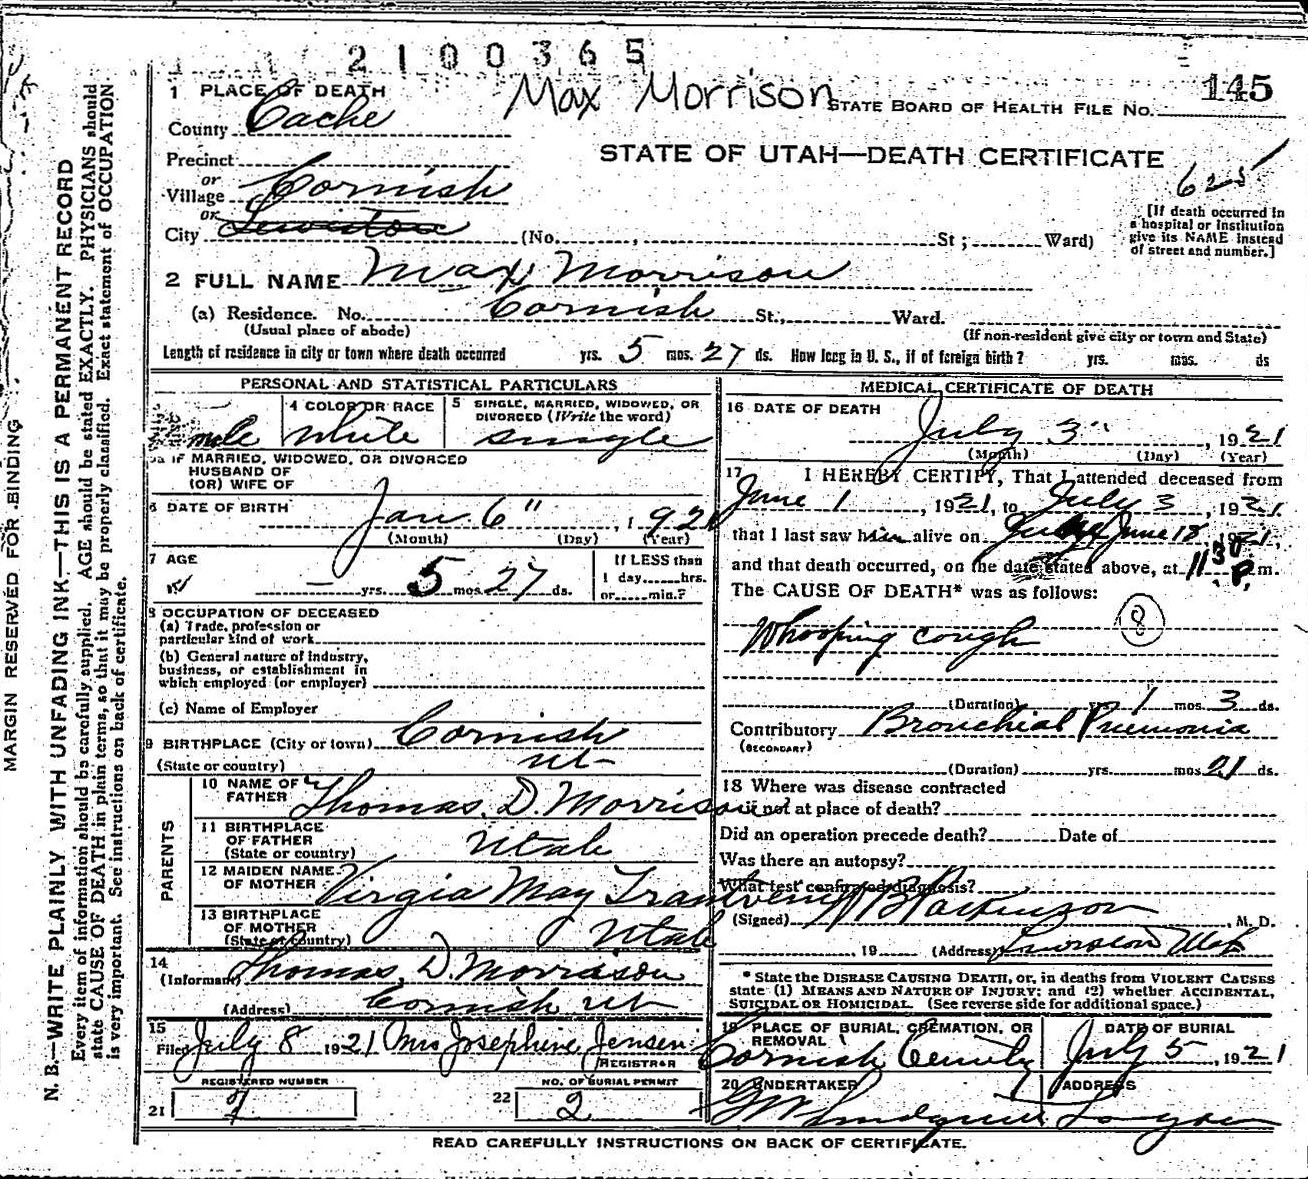 2100365
Max Morrison
145
1 PLACE OF DEATH
STATE BOARD OF HEALTH FILE No.
County Cache
STATE OF UTAH—DEATH CERTIFICATE
Precinct
or
Village Cornish
625
or
City Lewiston (No. , St ; Ward)
[If death occurred in
a hospital or institution
give its NAME instead
of street and number.]
2 FULL NAME Max Morrison
(a) Residence. No. Cornish St., Ward.
(Usual place of abode)
(If non-resident give city or town and State)
Length of residence in city or town where death occurred yrs. 5 mos. 27 ds. How long in U. S., if of foreign birth? yrs. mos. ds
PERSONAL AND STATISTICAL PARTICULARS
4 COLOR OR RACE
5 SINGLE, MARRIED, WIDOWED, OR
DIVORCED (Write the word)
male white single
5a IF MARRIED, WIDOWED, OR DIVORCED
HUSBAND OF
(OR) WIFE OF
6 DATE OF BIRTH
Jan. 6" , 1921
(Month) (Day) (Year)
7 AGE
— yrs. 5 mos. 27 ds.
If LESS than
1 day......hrs.
or......min.?
8 OCCUPATION OF DECEASED
(a) Trade, profession or
particular kind of work
(b) General nature of industry,
business, or establishment in
which employed (or employer)
(c) Name of Employer
9 BIRTHPLACE (City or town) Cornish
(State or country) Ut
PARENTS
10 NAME OF
FATHER Thomas D. Morrison
11 BIRTHPLACE
OF FATHER
(State or country) Utah
12 MAIDEN NAME
OF MOTHER Virgia May
13 BIRTHPLACE
OF MOTHER
(State or country) Utah
14
(Informant) Thomas D. Morrison
(Address) Cornish Ut
15
Filed July 8 1921 Mrs Josephine Jensen
REGISTRAR
REGISTERED NUMBER
21 7
NO. OF BURIAL PERMIT
22 2
MEDICAL CERTIFICATE OF DEATH
16 DATE OF DEATH
July 3" , 1921
(Month) (Day) (Year)
17 I HEREBY CERTIFY, That I attended deceased from
June 1 , 1921, to July 3 , 1921
that I last saw him alive on June 18, 1921,
and that death occurred, on the date stated above, at 11:30 P. m.
The CAUSE OF DEATH* was as follows:
8
Whooping cough
(Duration) yrs. 1 mos. 3 ds.
Contributory Bronchial Pneumonia
(SECONDARY)
(Duration) yrs. mos. 21 ds.
18 Where was disease contracted
if not at place of death?
Did an operation precede death? Date of
Was there an autopsy?
What test confirmed diagnosis?
(Signed) Parkinson , M. D.
, 19 (Address) Lewiston Utah
* State the DISEASE CAUSING DEATH, or, in deaths from VIOLENT CAUSES
state (1) MEANS AND NATURE OF INJURY; and (2) whether ACCIDENTAL,
SUICIDAL OR HOMICIDAL. (See reverse side for additional space.)
19 PLACE OF BURIAL, CREMATION, OR
REMOVAL
Cornish
DATE OF BURIAL
July 5 , 1921
20 UNDERTAKER
ADDRESS
Logan
READ CAREFULLY INSTRUCTIONS ON BACK OF CERTIFICATE.
MARGIN RESERVED FOR BINDING
N. B.—WRITE PLAINLY, WITH UNFADING INK—THIS IS A PERMANENT RECORD
Every item of information should be carefully supplied. AGE should be stated EXACTLY. PHYSICIANS should
state CAUSE OF DEATH in plain terms, so that it may be properly classified. Exact statement of OCCUPATION
is very important. See instructions on back of certificate.